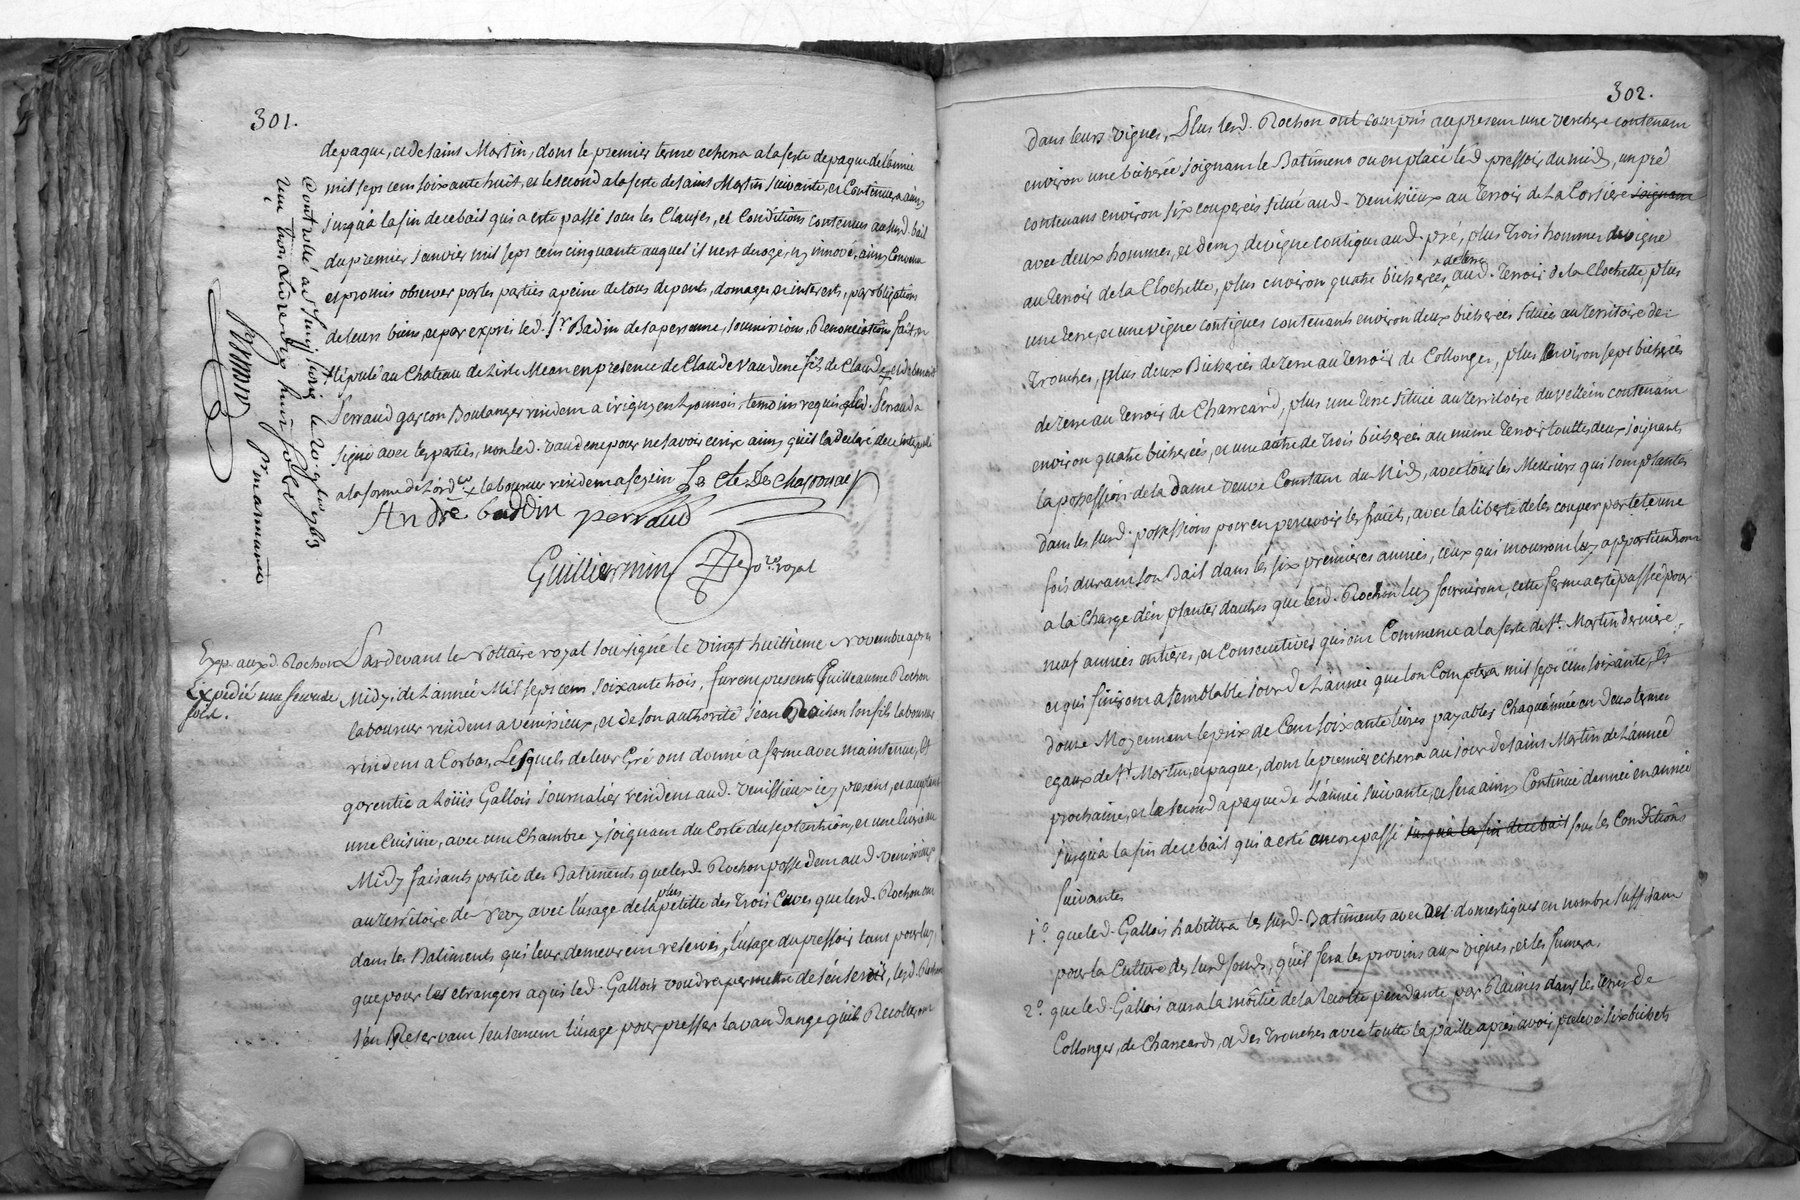 301.
de paque, et de saint Martin, dont le premier terme echerra a la feste de paque de l'année
mil sept cens soixante huit, et le second a la feste de saint Martin suivante, et Continuera ainsy
jusqu'a la fin de ce bail qui a esté passé sous les Clauses, et Conditions contenues au susd. bail
du premier Janvier mil sept cens cinquante auquel il n'est derogé, ny innové, ainsy Convenu
et promis observer par les parties a peine de tous depents, domages et interests, par obligation
de leurs biens, et par exprès led. Sr. Badin de sa personne, soumissions, Renonciations, fait et
stipulé au Chateau de en presence de Claude Vaudene fils de Claude
perraud garçon Boulanger residem a irigny en Lyonnois, temoins requis led. perraud a
signé avec les parties, non led. vaudene pour ne savoir ecrire ainsy qu'il l'a declaré de ce interpelé
a la forme de L'ord.ce x laboureur residem a fezein Le Cte De Chaponay
André baddin perraud
Guilliermin No.re royal
Controllé a St Simph.
Expe. auxd. Rochon
Expédié une seconde
fois.
Pardevant le Nottaire royal sousigné le vingt huitieme Novembre apres
Midy, de L'année Mil sept cens soixante trois, furem presents Guilleaume Rochon
laboureur residem a venissieux, et de son authorité Jean Rochon son fils laboureur
residem a Corbas, Lesquels de leur Gré ont donné a ferme avec maintenue, et
garentie a Loüis Gallois journalier residem aud. venissieux icy present, et acceptant
une Cuisine, avec une Chambre y joignam du Coté du septentrion, et une au
Midy faisants partie des Batiments que lesd. Rochon possedem aud. venissieux
au territoire de Vevy avec l'usage de la plus petitte des trois Caves que lesd. Rochon ont
dans les Batiments qui leur demeurem reservés, l'usage du pressoir tant pour luy
que pour les etrangers a qui led. Gallois voudra permettre de s'en servir, lesd. Rochon
s'en Reservam seulement l'usage pour presser la vandange qu'ils Recolterom
302.
dans leurs vignes, Plus lesd. Rochon ont compris au present une verchere contenam
environ une bicherée joignam le Batiment ou en placé led. pressoir du midy, un pré
contenant environ six couperées situé aud. venissieux au terroir de La Corsiere joignam
avec deux hommes, et demy de vigne contigue aud. pré, plus trois hommes de vigne
au terroir de la Clochette, plus environ quatre bicherées de terre aud. terroir de la Clochette, plus
une terre, et une vigne contigues contenants environ deux bicherées située au territoire de
trouches, plus deux Bicherées de terre au terroir de Collonges, plus environ sept bicherées
de terre au terroir de Charreard, plus une terre située au territoire du vellein contenam
environ quatre bicherées, et une autre de trois bicherées au même terroir touttes deux joignants
la possession de la dame veuve Constam du Midy, avec tous les Meuriers qui som plantés
dans les susd. possessions pour en percevoir les fruits, avec la liberté de les couper par tete une
fois duram son Bail dans les six premieres années, ceux qui mourrom luy appartiendrom
a la Charge d'en planter d'autres que lesd. Rochon luy fournirom, cette ferme a esté passée pour
neuf années entières, et Consecutives qui om Commencé a la feste de St. Martin derniere
et qui finirom a semblable jour de L'année que l'on Comptera mil sept cens soixante, et
douse Moyennam le prix de Cent soixante livres payables chaque année en deux termes
egaux de St. Martin, et paque, dont le premier echerra au jour de saint Martin de L'année
prochaine, et le second a paque de L'année suivante, et sera ainsy Continué d'année en année
jusqu'a la fin de ce bail qui a esté encore passé jusqu'a la fin de ce bail sous les Conditions
suivantes
1°. que led. Gallois habittera les susd. Batiments avec des domestiques en nombre suffisam
pour la Culture des susd fonds, qu'il fera les provins aux vignes, et les fumera.
2°. que led. Gallois aura la moitié de la Recolte pendante par Racines dans les terres de
Collonges, de Charreard, et des trouches avec toutte la paille apres avoir prelevé six bichets